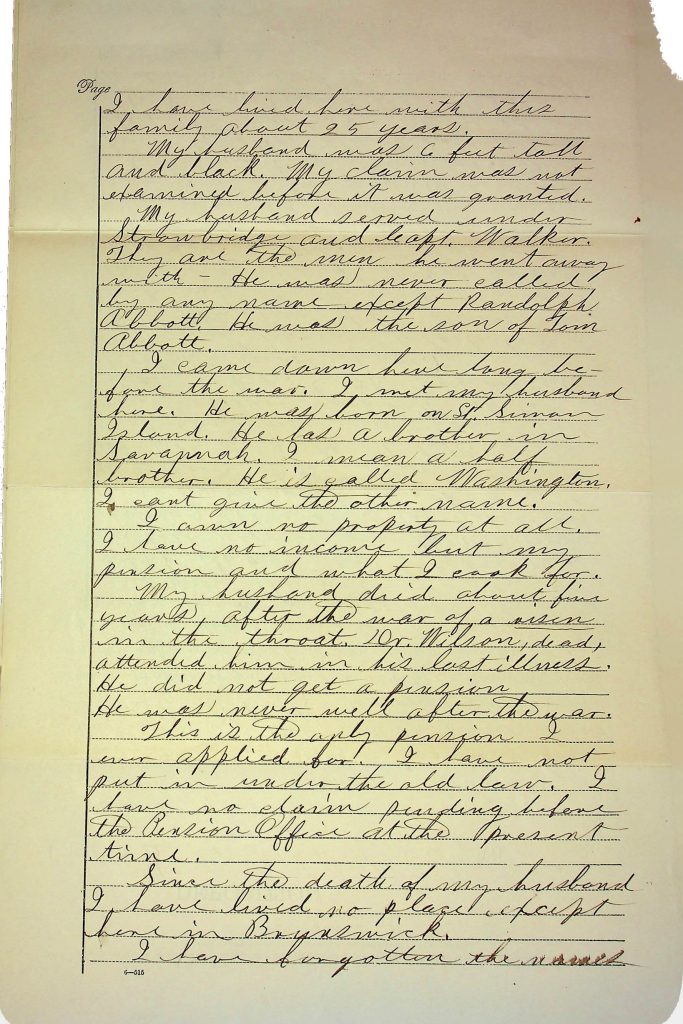 Page
I have lived here with this
family about 25 years.
My husband was 6 feet tall
and black. My claim was not
examined before it was granted.
My husband served under
Strowbridge and Capt. Walker.
They are the men he went away
with – He was never called
by any name except Randolph
Abbott. He was the son of Tom
Abbott.
I came down here long be-
fore the war. I met my husband
here. He was born on St. Simon
Island. He has a brother in
Savannah. I mean a half
brother. He is called Washington.
I cant give the other name.
I own no property at all.
I have no income but my
pension and what I cook for.
My husband died about five
years, after the war of a risen
in the throat. Dr. Wilson, dead,
attended him in his last illness.
He did not get a pension
He was never well after the war.
This is the only pension I
ever applied for. I have not
put in under the old law. I
have no claim pending before
the Pension Office at the present
time.
Since the death of my husband
I have lived no place except
here in Brunswick.
I have forgotton the names
6—515